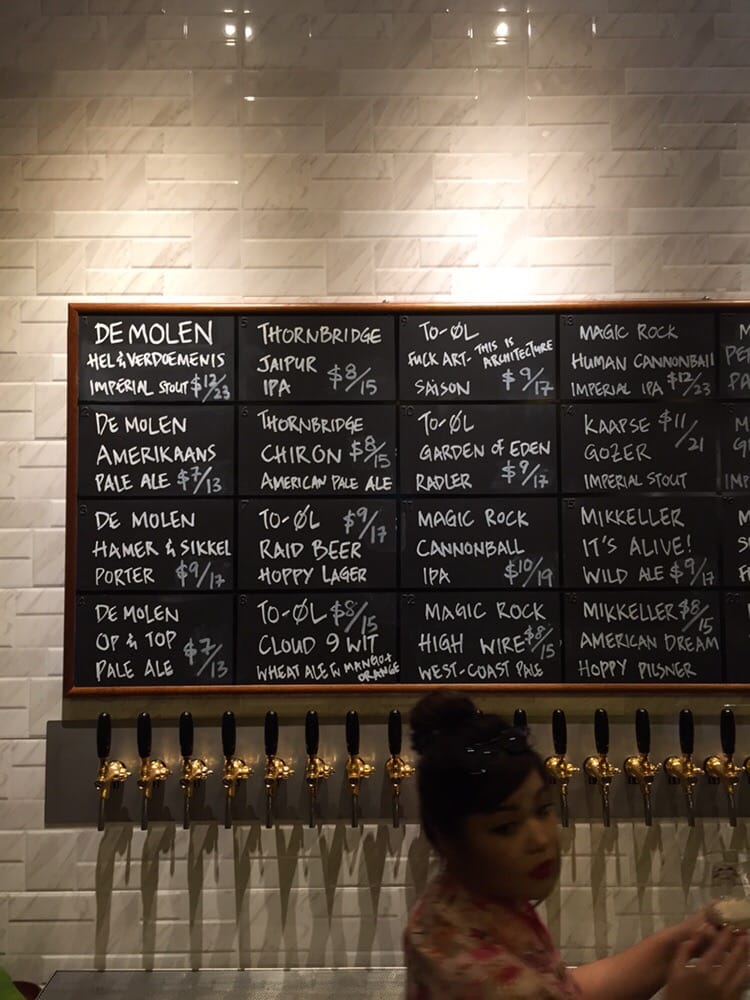 1
DE MOLEN
HEL & VERDOEMENIS
IMPERIAL STOUT $12/23
2
DE MOLEN
AMERIKAANS
PALE ALE $7/13
3
DE MOLEN
HAMER & SIKKEL
PORTER $9/17
4
DE MOLEN
OP & TOP
PALE ALE $7/13
5
THORNBRIDGE
JAIPUR
IPA $8/15
6
THORNBRIDGE
CHIRON $8/15
AMERICAN PALE ALE
7
TO-ØL $9/17
RAID BEER
HOPPY LAGER
8
TO-ØL $8/15
CLOUD 9 WIT
WHEAT ALE W MANGO + ORANGE
9
TO-ØL
FUCK ART- THIS IS ARCHITECTURE
SAISON $9/17
10
TO-ØL
GARDEN OF EDEN
RADLER $9/17
MAGIC ROCK
CANNONBALL
IPA $10/19
12
MAGIC ROCK
HIGH WIRE $8/15
WEST-COAST PALE
13
MAGIC ROCK
HUMAN CANNONBALL
IMPERIAL IPA $12/23
14
KAAPSE $11/21
GOZER
IMPERIAL STOUT
15
MIKKELLER
IT'S ALIVE!
WILD ALE $9/17
16
MIKKELLER $8/15
AMERICAN DREAM
HOPPY PILSNER